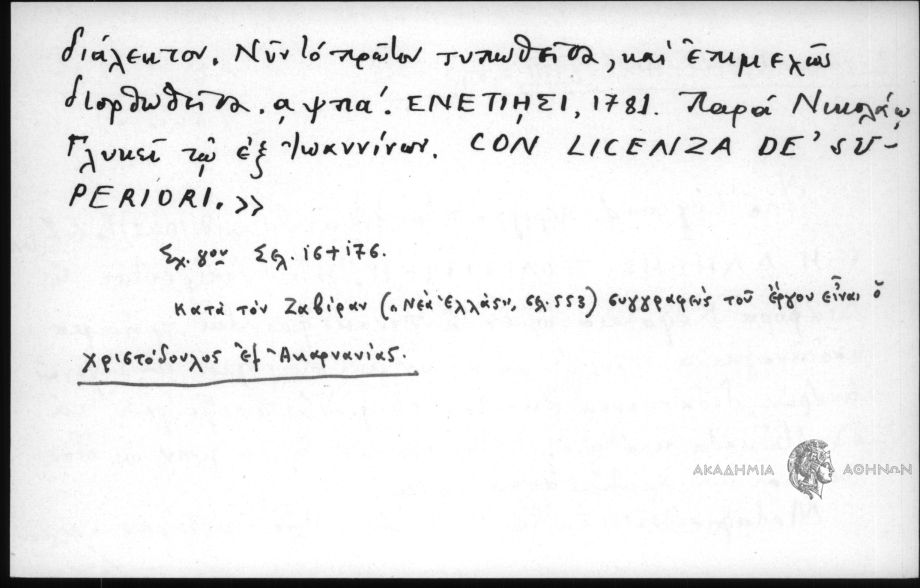 διάλεκτον. Νῦν τὸ πρῶτον τυπωθεῖσα, καὶ ἐπιμελῶς
διορθωθεῖσα. αψπα'. ΕΝΕΤΙῌΣΙ, 1781. Παρὰ Νικολάῳ
Γλυκεῖ τῷ ἐξ Ἰωαννίνων. CON LICENZA DE' SU-
PERIORI.»
Σχ. 8ον Σελ. 16+176.
Κατὰ τὸν Ζαβίραν («Νέα Ἑλλάς», σελ. 553) συγγραφεὺς τοῦ ἔργου εἶναι ὁ
Χριστόδουλος ἐξ Ἀκαρνανίας.
ΑΚΑΔΗΜΙΑ ΑΘΗΝΩΝ